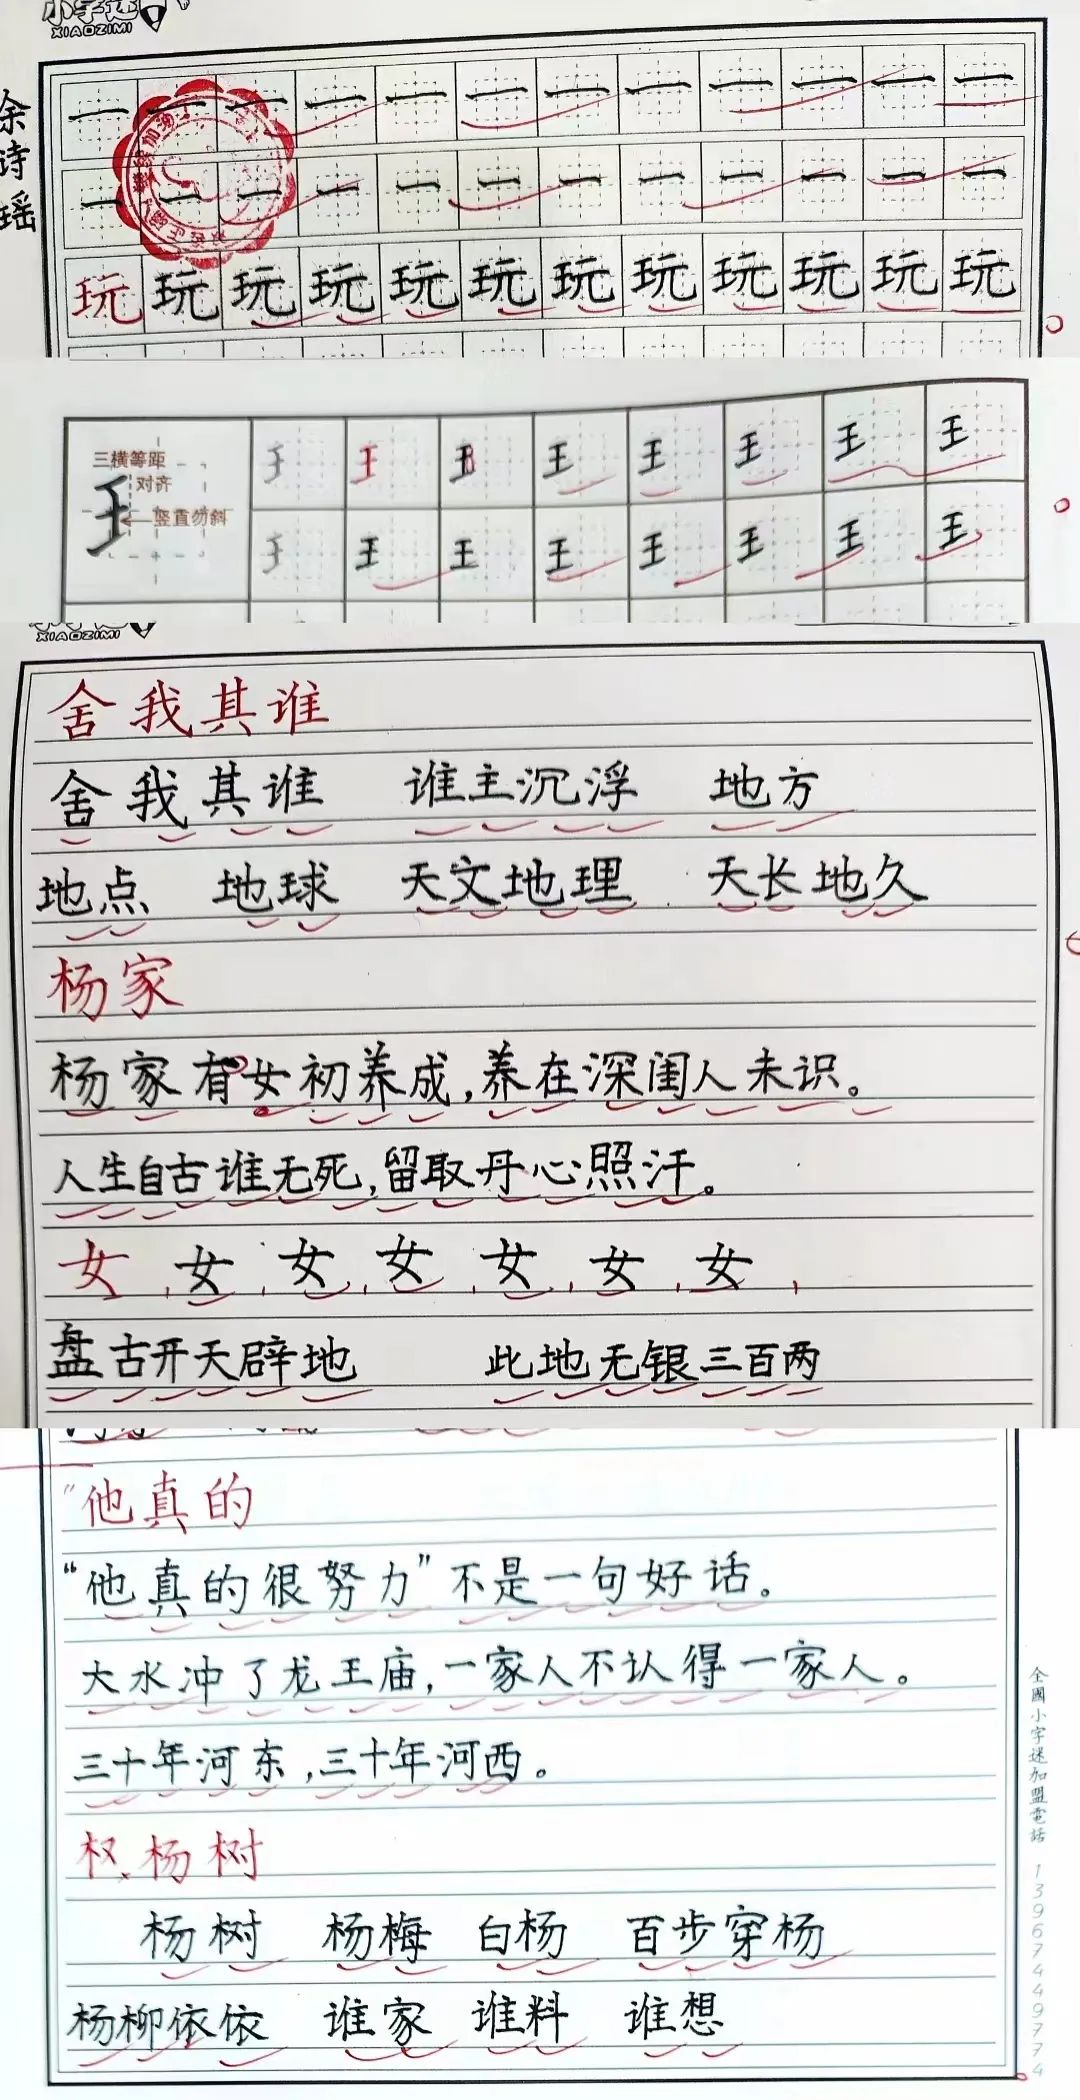 小字迷
XIAOZIMI
余诗瑶
一 一 一 一 一 一 一 一 一 一 一 一
一 一 一 一 一 一 一 一 一 一 一 一
玩 玩 玩 玩 玩 玩 玩 玩 玩 玩 玩 玩
三横等距
对齐
竖直勿斜
XIAOZIMI
舍我其谁
舍我其谁 谁主沉浮 地方
地点 地球 天文地理 天长地久
杨家
杨家有女初养成,养在深闺人未识。
人生自古谁无死,留取丹心照汗。
女 女 女 女 女 女 女
盘古开天辟地 此地无银三百两
"他真的
“他真的很努力”不是一句好话。
大水冲了龙王庙,一家人不认得一家人。
三十年河东,三十年河西。
杨树
杨树 杨梅 白杨 百步穿杨
杨柳依依 谁家 谁料 谁想
全國小字迷加盟電話 13967449774